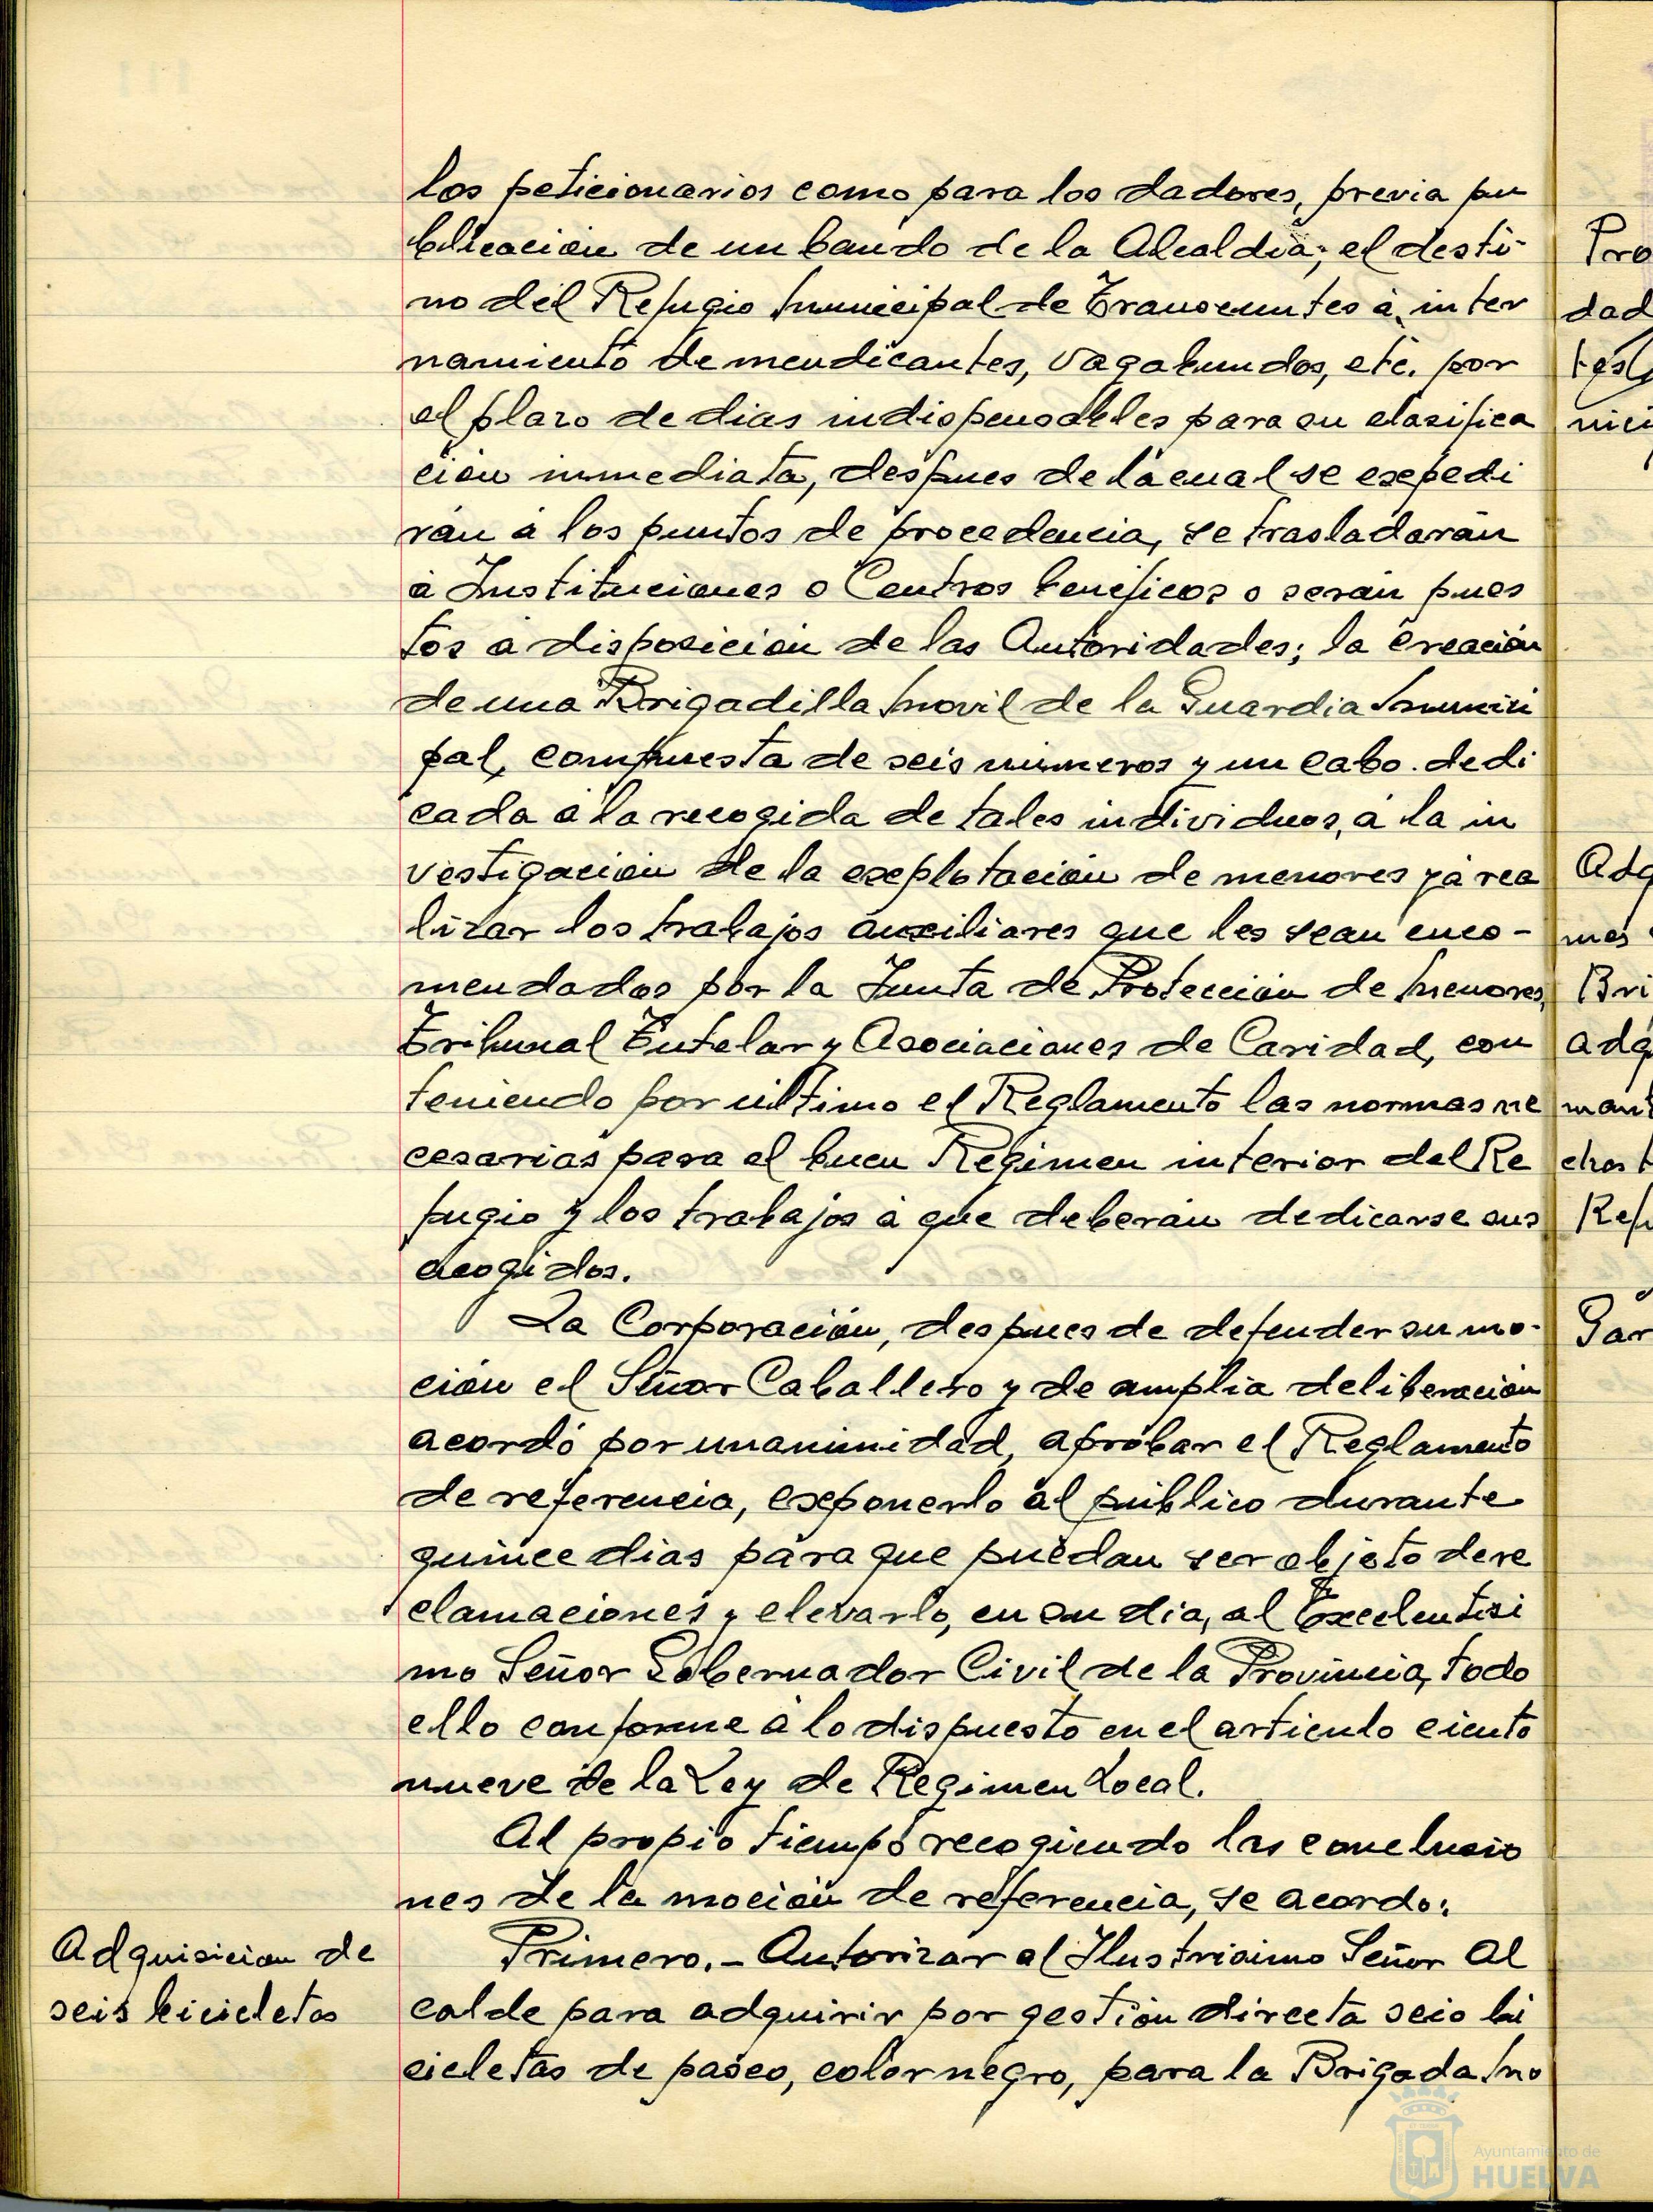 los peticionarios como para los dadores, previa pu
blicación de un bando de la Alcaldía; el desti-
no del Refugio Municipal de Transeuntes á inter
namiento de mendicantes, vagabundos, etc. por
el plazo de dias indispensables para su clasifica
ción inmediata, despues de la cual se expedi
rán á los puntos de procedencia, se trasladarán
á Instituciones o Centros beneficos o serán pues
tos á disposición de las Autoridades; la creación
de una Brigadilla Movil de la Guardia Munici
pal, compuesta de seis números y un cabo. dedi
cada á la recogida de tales individuos, á la in
vestigación de la explotación de menores y á rea
lizar los trabajos auxiliares que les sean enco-
mendados por la Junta de Protección de Menores,
Tribunal Tutelar y Asociaciones de Caridad, con
teniendo por último el Reglamento las normas ne
cesarias para el buen Regimen interior del Re
fugio y los trabajos á que deberán dedicarse sus
acogidos.
La Corporación, despues de defender su mo-
ción el Señor Caballero y de amplia deliberación
acordó por unanimidad, aprobar el Reglamento
de referencia, exponerlo al público durante
quince dias para que puedan ser objeto de re
clamaciones y elevarlo, en su dia, al Excelentisi
mo Señor Gobernador Civil de la Provincia, todo
ello conforme á lo dispuesto en el articulo ciento
nueve de la Ley de Regimen Local.
Al propio tiempo recogiendo las conclusio
nes de la moción de referencia, se acordo:
Adquisicion de
seis bicicletas
Primero.- Autorizar al Ilustrisimo Señor Al
calde para adquirir por gestión directa seis bi
cicletas de paseo, color negro, para la Brigada Mo
Pro
dad
nici
Adq
mas
Bri
adq
mant
chas
Refu
Gar
Ayuntamiento de
HUELVA